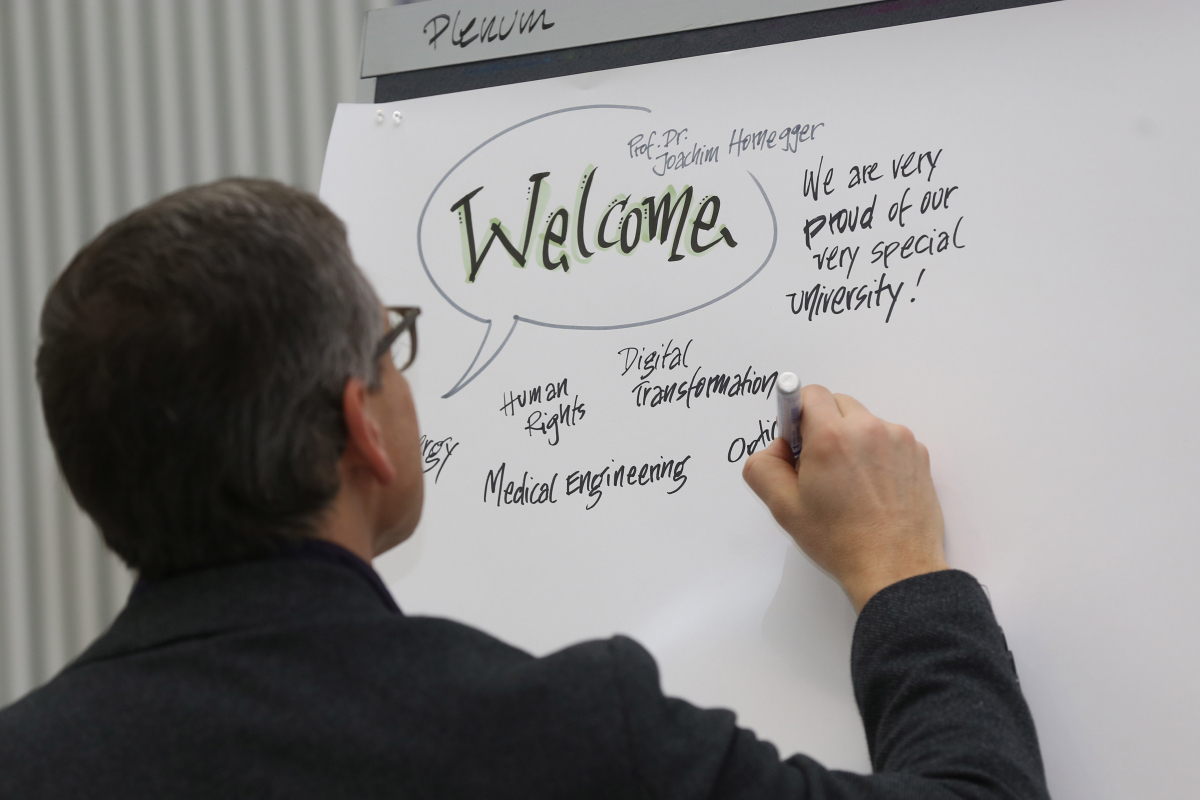 Plenum
Prof. Dr.
Joachim Hornegger
Welcome
We are very
proud of our
very special
university!
Digital
Transformation
Human
Rights
Medical Engineering